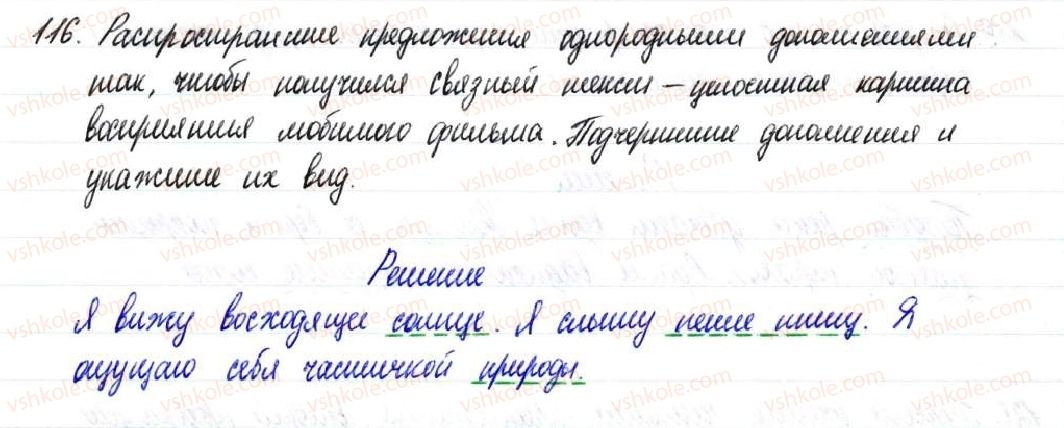 116. Распространите предложения однородными дополнениями
так, чтобы получился связный текст – целостная картина
восприятия любимого фильма. Подчеркните дополнения и
укажите их вид.
Решение
Я вижу восходящее солнце. Я слышу пение птиц. Я
ощущаю себя частичкой природы.